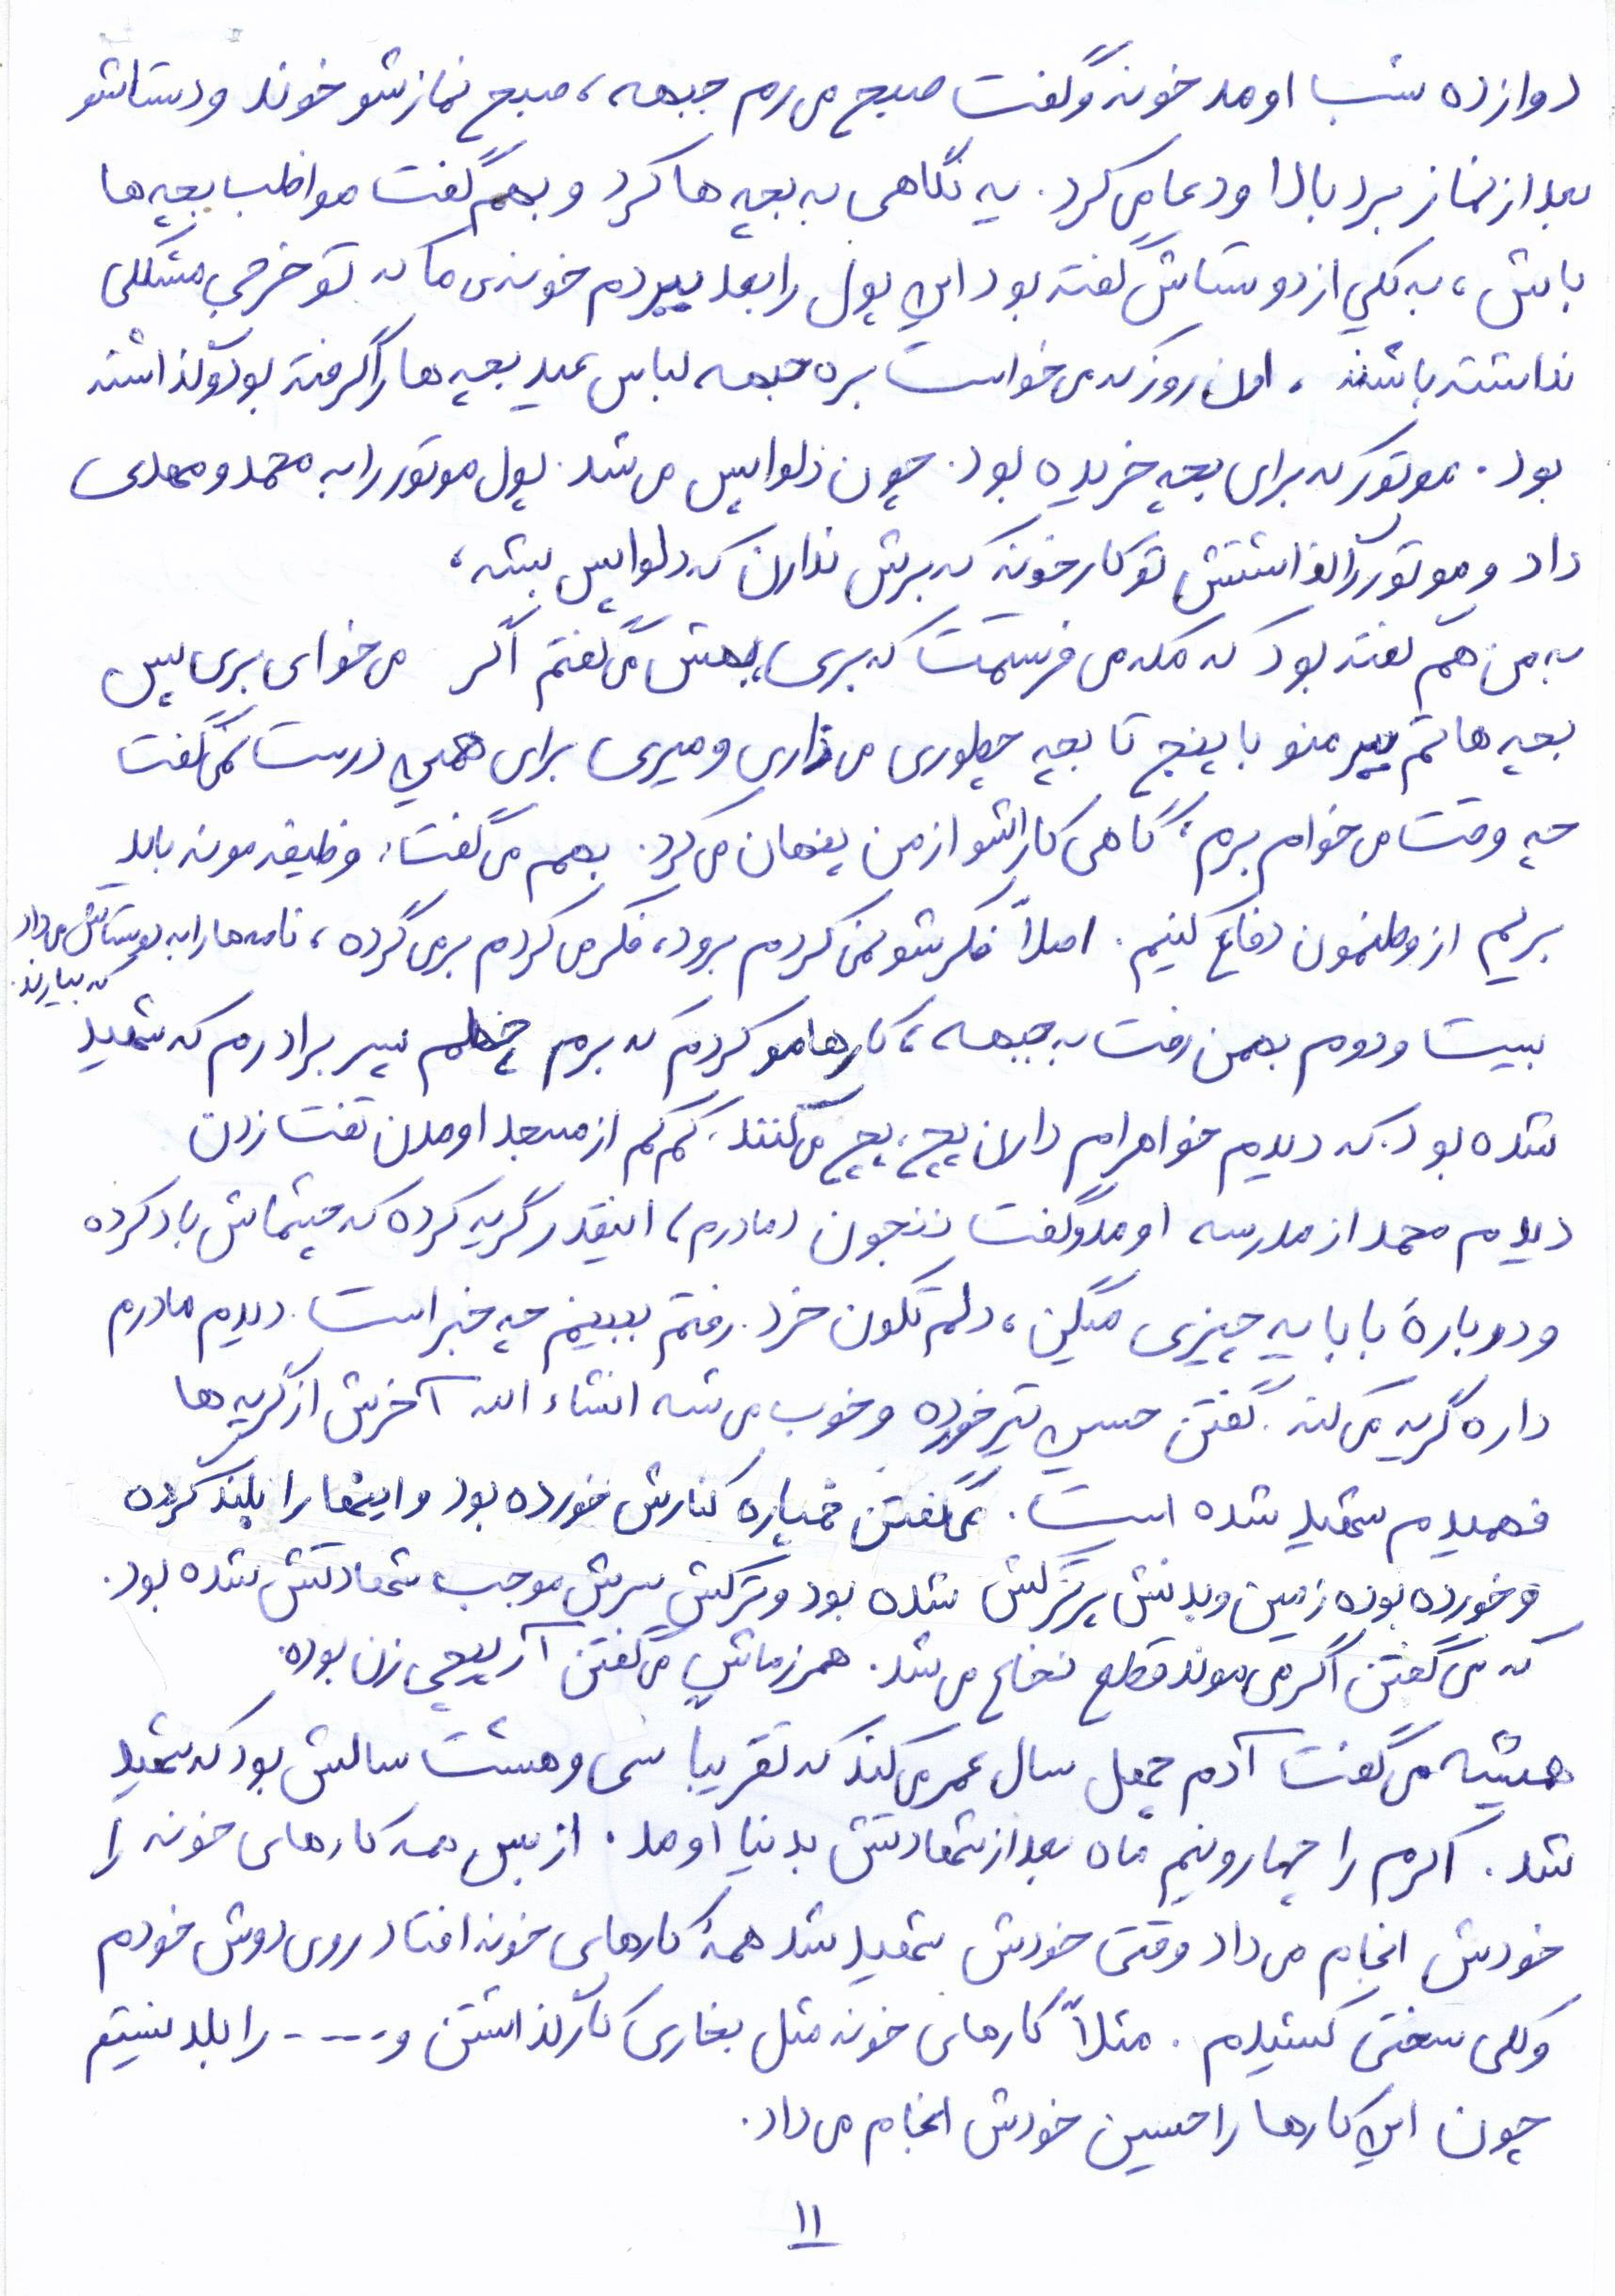 دوازده شب اومد خونه و گفت صبح می رم جبهه، صبح نمازشو خوند و دستاشو
بعد از نماز برد بالا و دعا می کرد. یه نگاهی به بچه ها کرد و بهم گفت مواظب بچه ها
باش، به یکی از دوستاش گفته بود این پول را بعد ببر دم خونه ی ما که تو خرجی مشکلی
نداشته باشند، اون روز که می خواست بره جبهه لباس عید بچه ها را گرفته بود و گذاشته
بود. موتور که برای بچه خریده بود. چون دلواپس می شد. پول موتور را به محمد و مهدی
داد و موتور را گذاشتش تو کارخونه که برش ندارن که دلواپس بشه،
به من هم گفته بود که مکه می فرستمت که بری، بهش می گفتم اگر می خوای بری پس
بچه هاتم ببر منو با پنج تا بچه چطوری می ذاری و میری برای همین درست نمی گفت
چه وقت می خوام برم، گاهی کاراشو از من پنهان می کرد. بهم می گفت: وظیفه مونه باید
بریم از وطنمون دفاع کنیم. اصلاً فکرشو نمی کردم برود، فکر می کردم برمی گرده، نامه ها را به دوستاش می داد
که بیارند.
بیست و دوم بهمن رفت به جبهه، کارهامو کردم که برم ختم پسر برادرم که شهید
شده بود. که دیدم خواهرام دارن پچ، پچ می کنند. کم کم از مسجد اومدن تفت زدن
دیدم محمد از مدرسه اومد و گفت ننجون (مادرم) اینقدر گریه کرده که چشماش باد کرده
و دربارهٔ بابا یه چیزی میگن، دلم تکون خرد. رفتم ببینم چه خبر است. دیدم مادرم
داره گریه می کنه. گفتن حسین تیر خورده و خوب می شه انشاء الله آخرش از گریه ها
فهمیدم شهید شده است. می گفتن خمپاره کنارش خورده بود و اینها را بلند کرده
و خورده بوده زمین و بدنش پر ترکش شده بود و ترکش سرش موجب شهادتش شده بود.
که می گفتن اگر می موند قطع نخاع می شد. همرزماش می گفتن آرپیجی زن بوده.
همیشه می گفت آدم چهل سال عمر می کند که تقریبا سی و هشت سالش بود که شهید
شد. اکرم را چهار و نیم ماه بعد از شهادتش بدنیا اومد. از بس همه کارهای خونه را
خودش انجام می داد وقتی خودش شهید شد همهٔ کارهای خونه افتاد روی دوش خودم
و کلی سختی کشیدم. مثلاً کارهای خونه مثل بخاری کار گذاشتن و---- را بلد نیستم
چون این کارها را حسین خودش انجام می داد.
۱۱